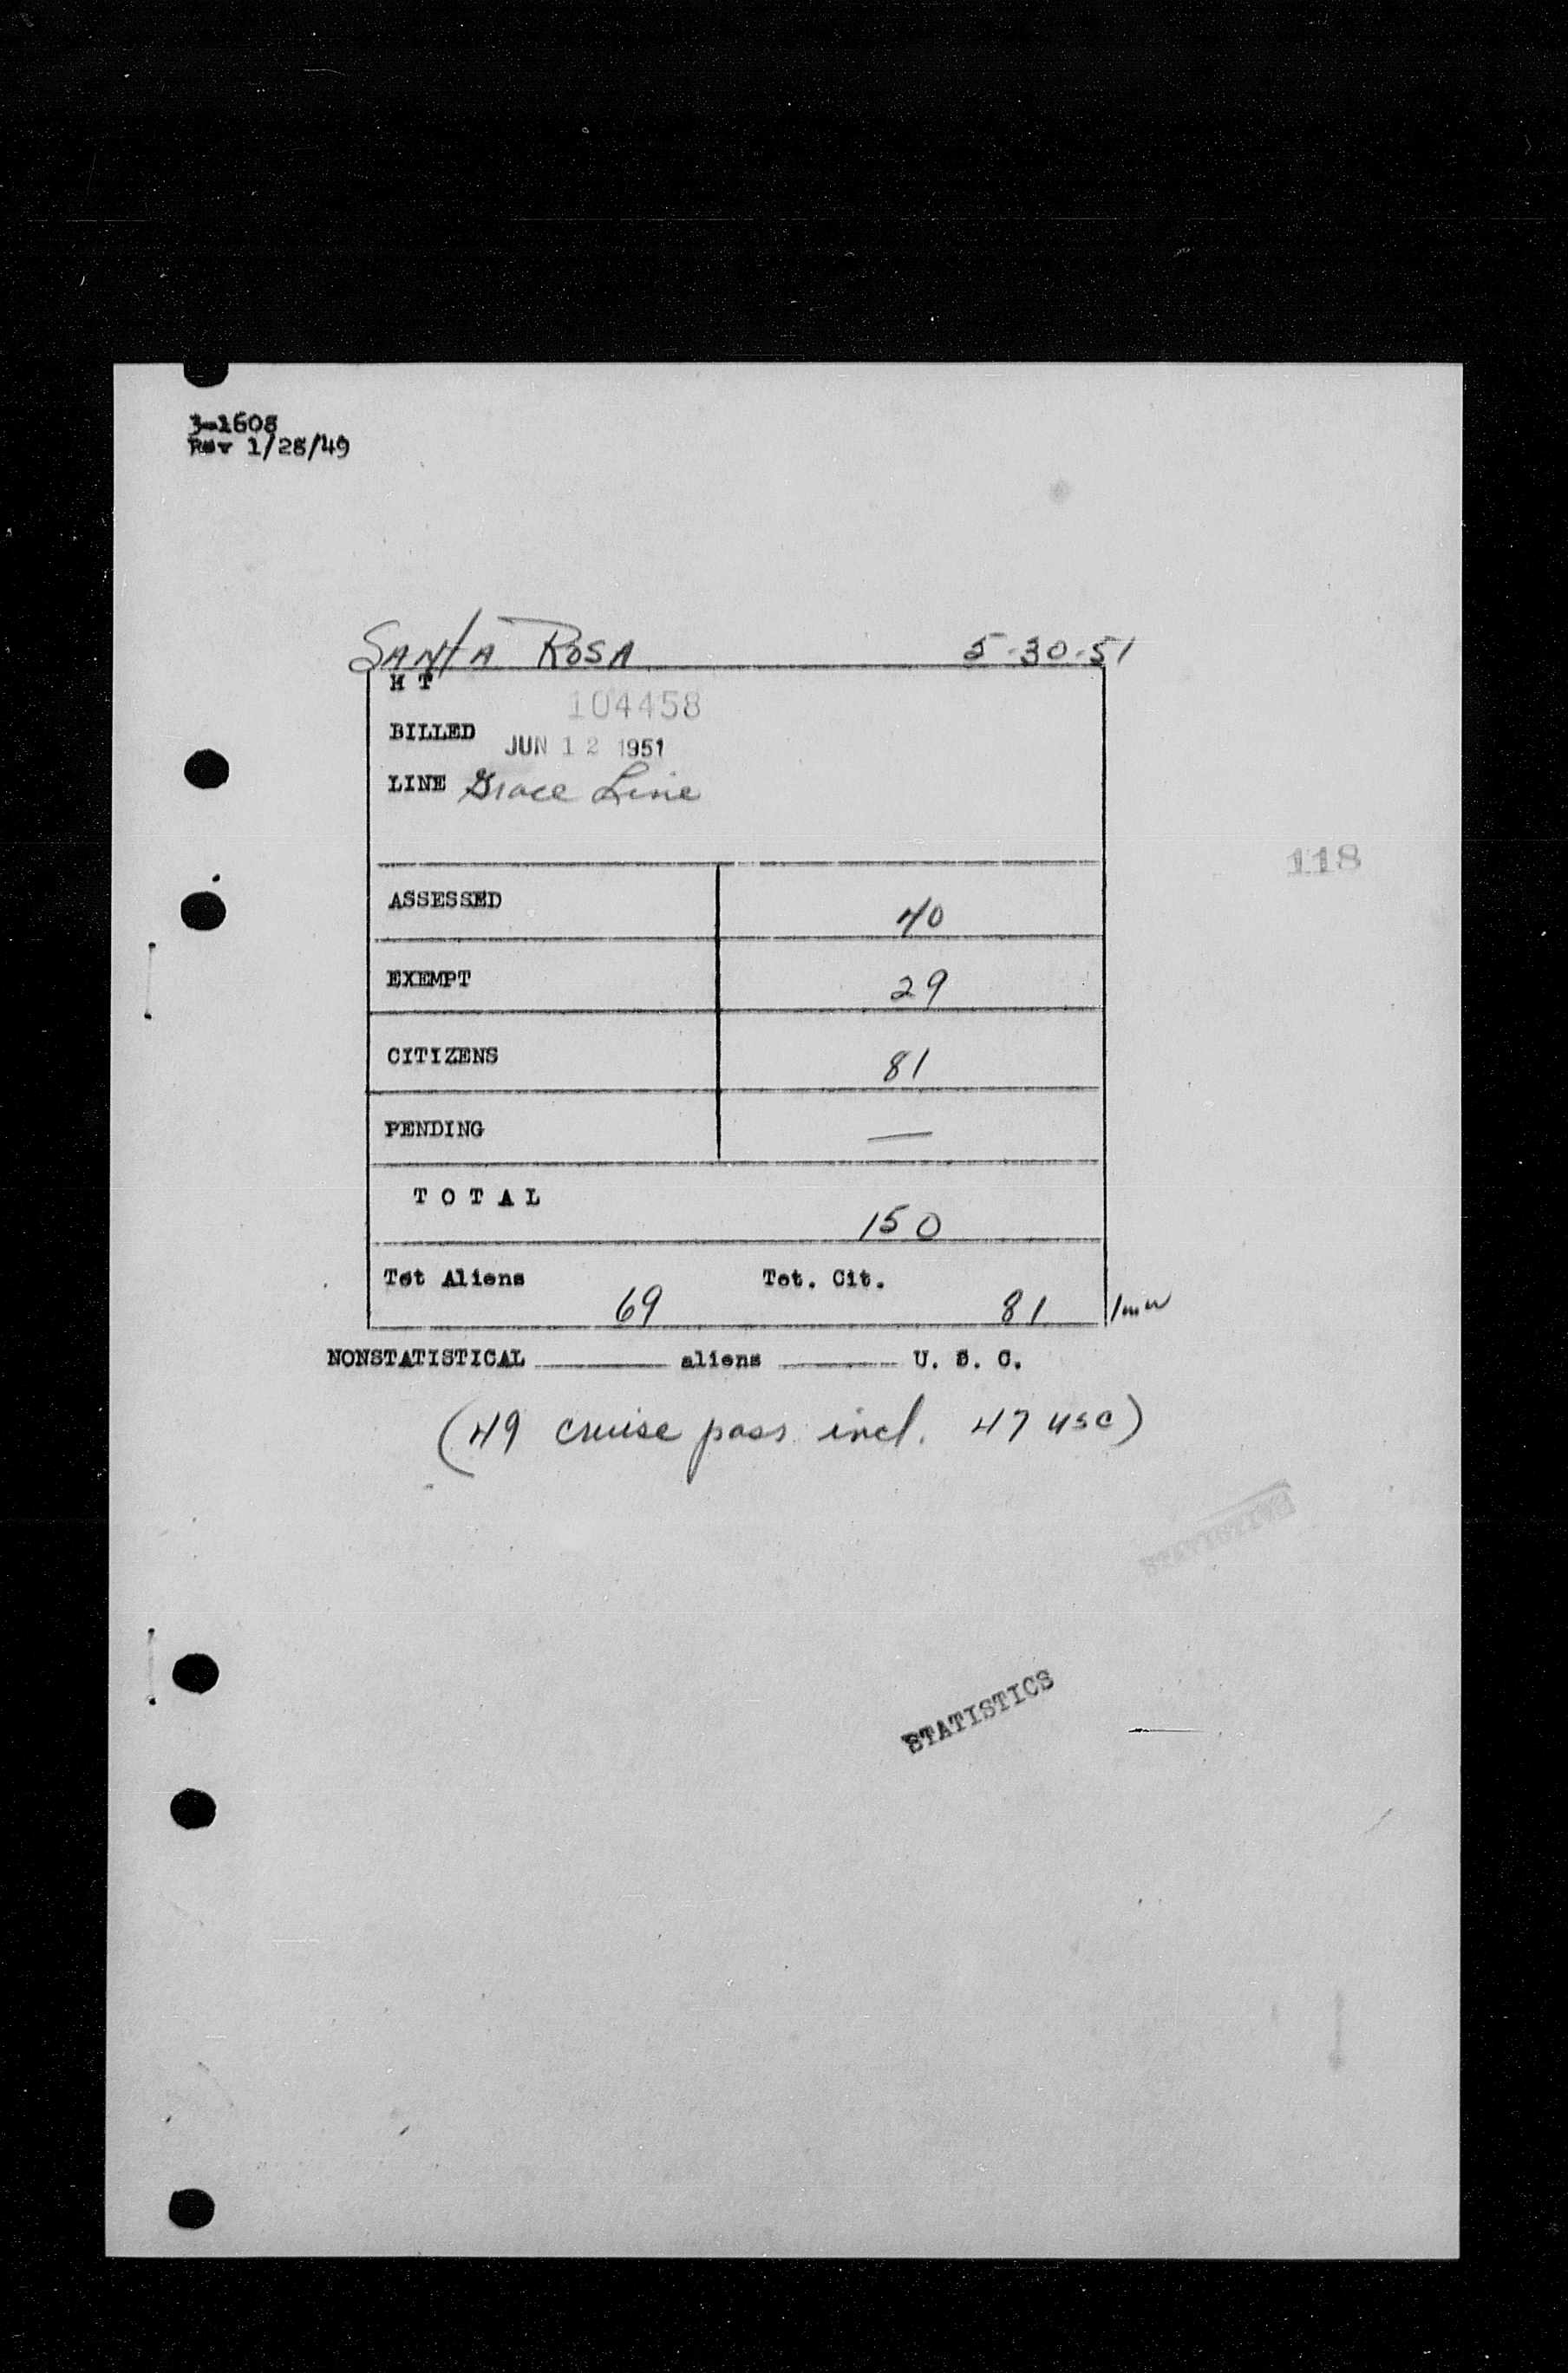 3-1608
Rev 1/28/49
SANTA ROSA 5-30-51
H T
104458
BILLED JUN 12 1951
LINE Grace Line
118
ASSESSED 40
EXEMPT 29
CITIZENS 81
PENDING —
TOTAL 150
Tot Aliens 69 Tot. Cit. 81
NONSTATISTICAL aliens U. S. C.
(49 cruise pass incl. 47 USC)
STATISTICS
STATISTICS